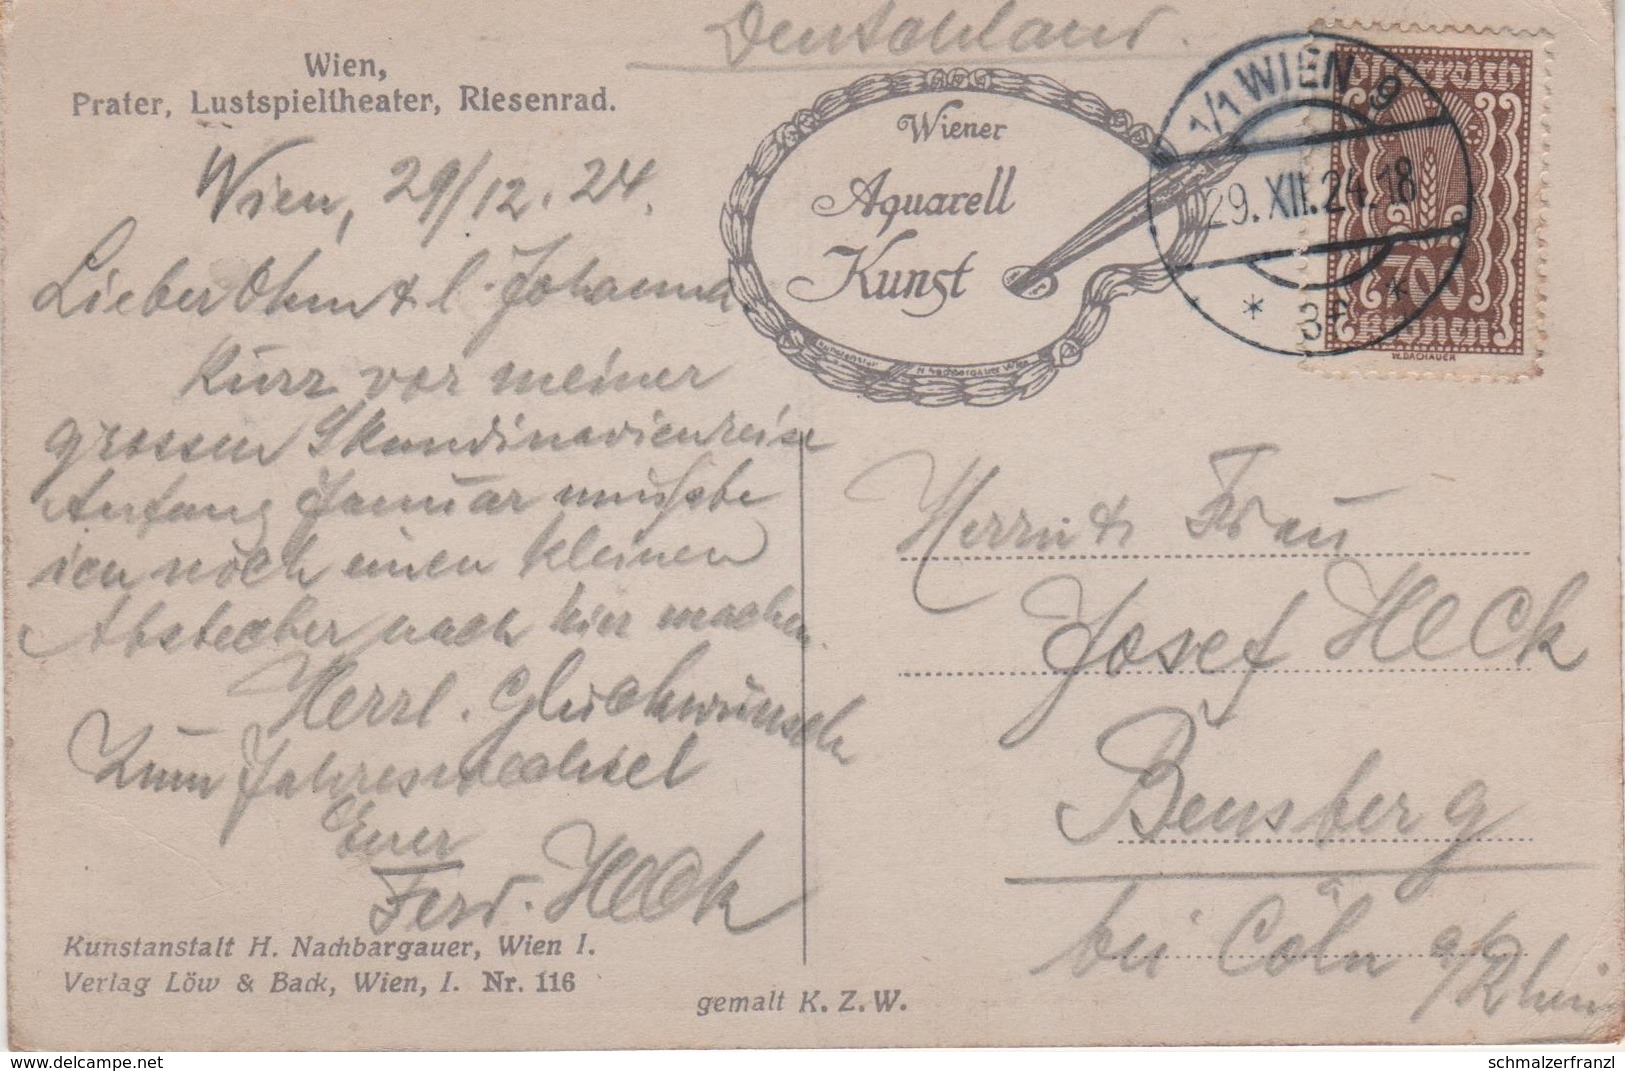 Deutschland.
Wien,
Prater, Lustspieltheater, Riesenrad.
Wien, 29/12. 24.
Lieber Ohm & l. Johanna
Kurz vor meiner
grossen Skandinavienreise
Anfang Januar mußte
ich noch einen kleinen
Abstecher nach hier machen.
Herzl. Glückwünsch
zum Jahreswechsel
Euer
Ferd. Heck
Kunstanstalt H. Nachbargauer, Wien I.
Verlag Löw & Back, Wien, I. Nr. 116
gemalt K. Z. W.
Wiener
Aquarell
Kunst
Kunstanstalt H Nachbargauer Wien
1/1 WIEN 9
29. XII. 24. 18
* 3 *
Österreich
700
Kronen
W. DACHAUER
Herrn & Frau
Josef Heck
Bensberg
bei Cöln a/Rhein
schmalzerfranzl